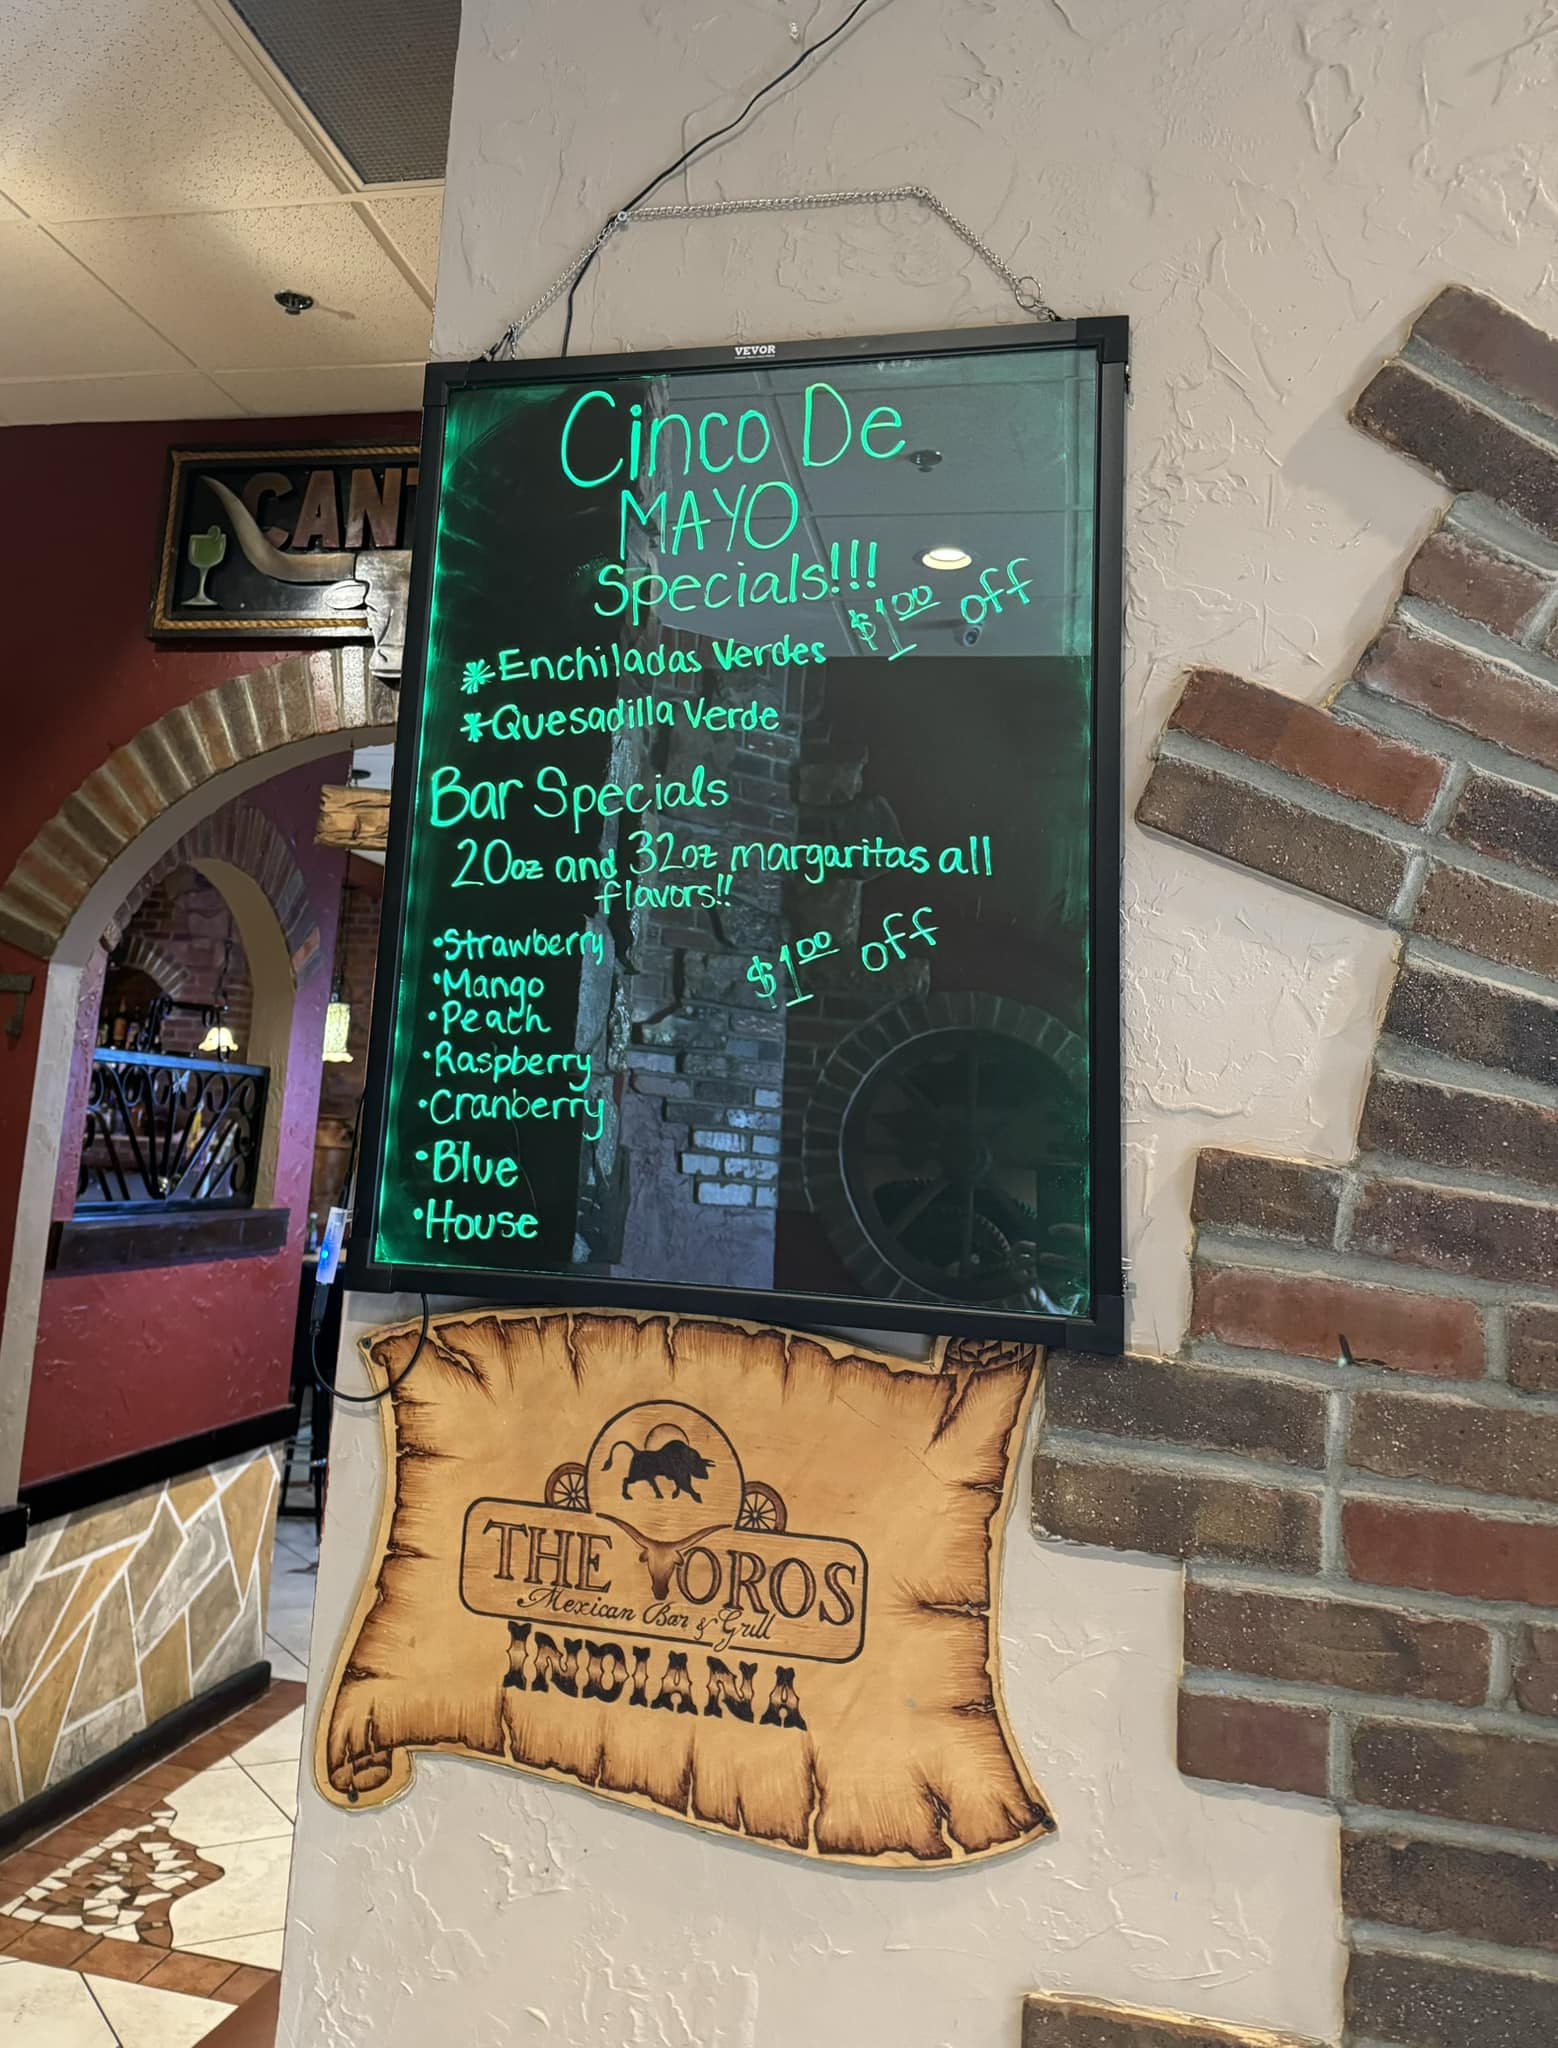 VEVOR
Cinco De
MAYO
Specials!!!
$1.00 off
*Enchiladas Verdes
*Quesadilla Verde
Bar Specials
20oz and 32oz margaritas all
flavors!!
$1.00 off
•Strawberry
•Mango
•Peach
•Raspberry
•Cranberry
•Blue
•House
CANT
THE TOROS
Mexican Bar & Grill
INDIANA